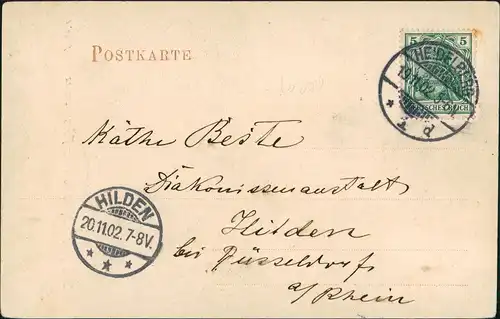 POSTKARTE
5 5
DEUTSCHES REICH
HEIDELBERG
.02.
* 1. d
Käthe Beste
Diakonissenanstalt
Hilden
bei Düsseldorf
a/Rhein
HILDEN
20.11.02. 7-8V.
* * *